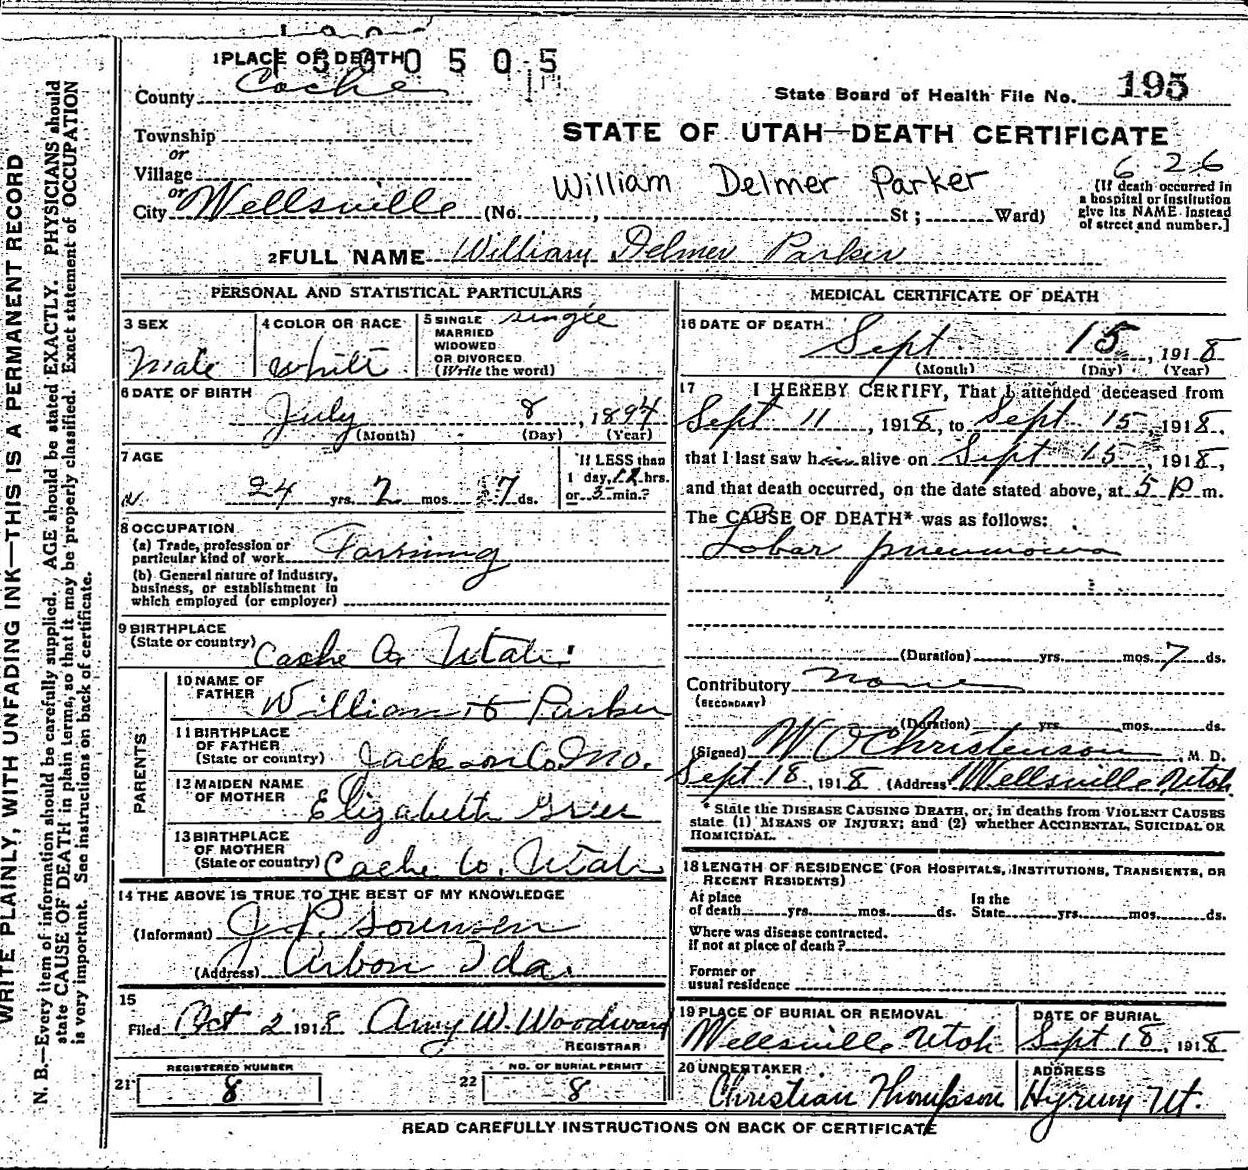 1 PLACE OF DEATH
1300505
County Cache
State Board of Health File No. 195
Township
or
STATE OF UTAH—DEATH CERTIFICATE
Village
William Delmer Parker
626
or
City Wellsville (No. , St ; Ward)
(If death occurred in
a hospital or institution
give its NAME instead
of street and number.]
2 FULL NAME William Delmer Parker
PERSONAL AND STATISTICAL PARTICULARS
3 SEX
Male
4 COLOR OR RACE
White
5 SINGLE
MARRIED
WIDOWED
OR DIVORCED
(Write the word)
single
6 DATE OF BIRTH
July 8, 1894
(Month) (Day) (Year)
7 AGE
24 yrs. 2 mos. 7 ds.
If LESS than
1 day, 12 hrs.
or 5 min.?
8 OCCUPATION
(a) Trade, profession or
particular kind of work Farming
(b) General nature of industry,
business, or establishment in
which employed (or employer)
9 BIRTHPLACE
(State or country) Cache Co. Utah
PARENTS
10 NAME OF
FATHER William H Parker
11 BIRTHPLACE
OF FATHER
(State or country) Jackson Co. Mo.
12 MAIDEN NAME
OF MOTHER Elizabeth
13 BIRTHPLACE
OF MOTHER
(State or country) Cache Co. Utah
14 THE ABOVE IS TRUE TO THE BEST OF MY KNOWLEDGE
(Informant) J. P. Sorensen
(Address) Arbon Ida.
15
Filed Oct 2 1918 Amy W. Woodward
REGISTRAR
21 REGISTERED NUMBER
8
22 NO. OF BURIAL PERMIT
8
MEDICAL CERTIFICATE OF DEATH
16 DATE OF DEATH
Sept. 15, 1918
(Month) (Day) (Year)
17 I HEREBY CERTIFY, That I attended deceased from
Sept 11, 1918, to Sept. 15, 1918,
that I last saw h alive on Sept 15, 1918,
and that death occurred, on the date stated above, at 5 P m.
The CAUSE OF DEATH* was as follows:
Lobar pneumonia
(Duration) yrs. mos. 7 ds.
Contributory none
(SECONDARY)
(Duration) yrs. mos. ds.
(Signed) W O Christenson, M. D.
Sept 18, 1918 (Address) Wellsville Utah.
* State the DISEASE CAUSING DEATH, or, in deaths from VIOLENT CAUSES
state (1) MEANS OF INJURY; and (2) whether ACCIDENTAL, SUICIDAL OR
HOMICIDAL.
18 LENGTH OF RESIDENCE (FOR HOSPITALS, INSTITUTIONS, TRANSIENTS, OR
RECENT RESIDENTS)
At place
of death yrs. mos. ds.
In the
State yrs. mos. ds.
Where was disease contracted.
if not at place of death?
Former or
usual residence
19 PLACE OF BURIAL OR REMOVAL
Wellsville Utah
DATE OF BURIAL
Sept 18, 1918
20 UNDERTAKER
Christian Thompson
ADDRESS
Hyrum Ut.
READ CAREFULLY INSTRUCTIONS ON BACK OF CERTIFICATE
WRITE PLAINLY, WITH UNFADING INK—THIS IS A PERMANENT RECORD
N. B.—Every item of information should be carefully supplied. AGE should be stated EXACTLY. PHYSICIANS should
state CAUSE OF DEATH in plain terms, so that it may be properly classified. Exact statement of OCCUPATION
is very important. See instructions on back of certificate.